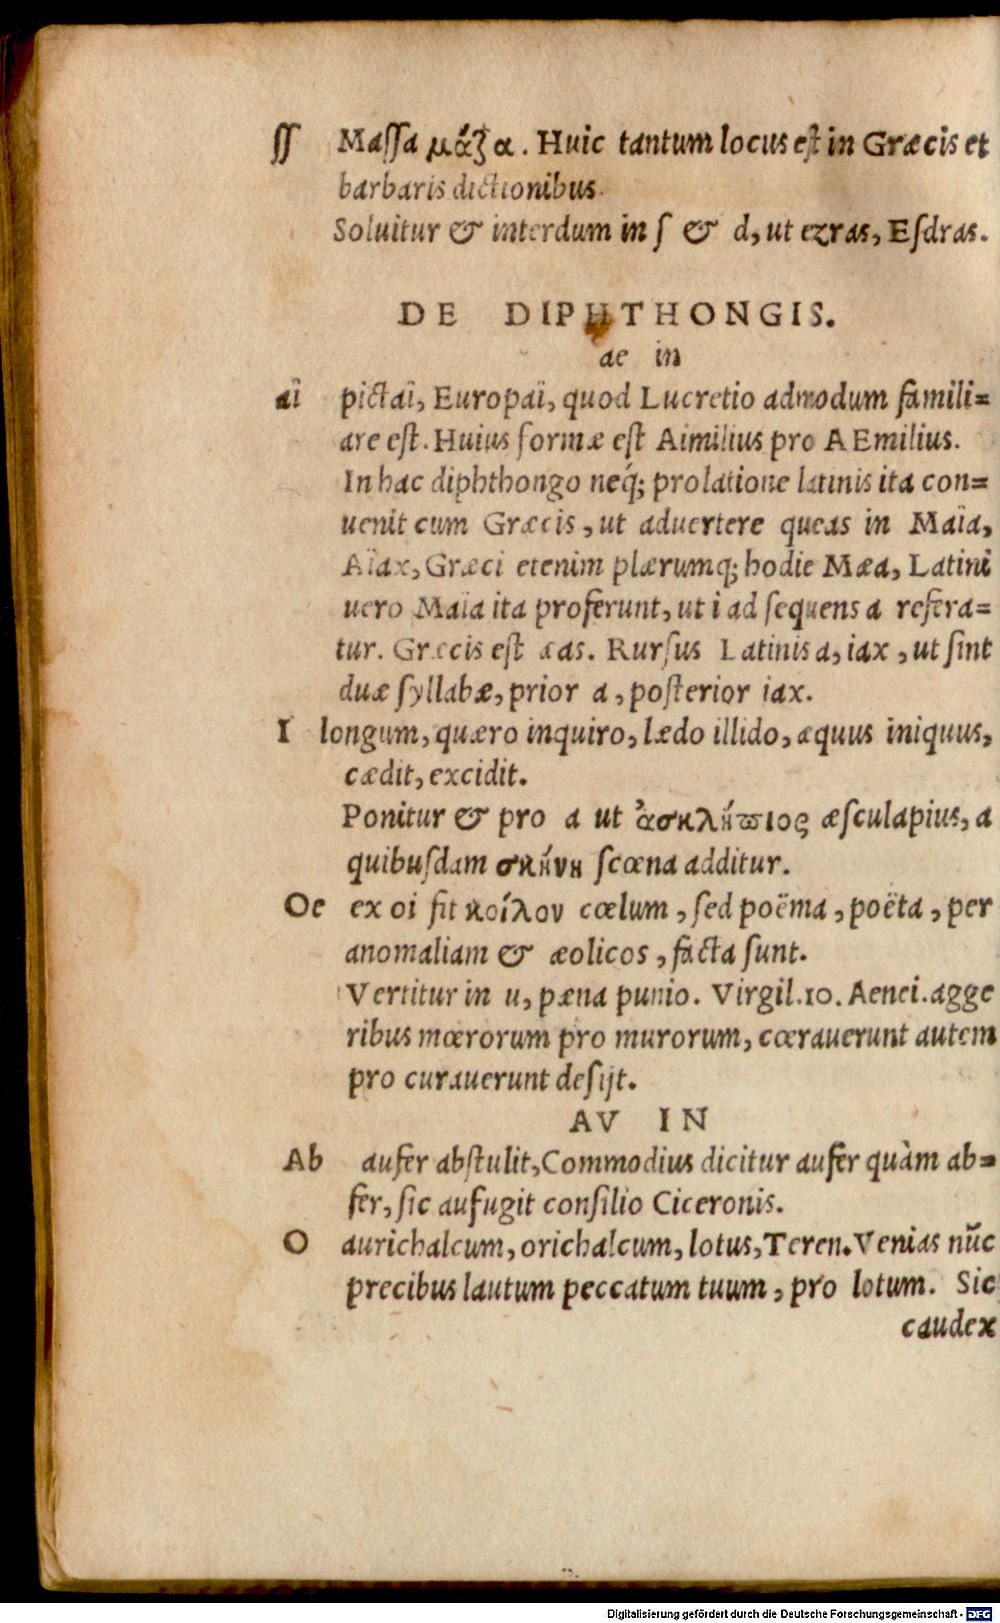 ſſ Maſſa μάζα. Huic tantum locus eſt in Græcis et
barbaris dictionibus.
Soluitur & interdum in ſ & d, ut ezras, Eſdras.
DE DIPHTHONGIS.
ae in
aï pictaï, Europaï, quod Lucretio admodum famili=
are eſt. Huius formæ eſt Aimilius pro AEmilius.
In hac diphthongo neq́; prolatione latinis ita con=
uenit cum Græcis, ut aduertere queas in Maïa,
Aïax, Græci etenim plærumq; hodie Mæa, Latini
uero Maïa ita proferunt, ut i ad ſequens a refera=
tur. Græcis eſt æas. Rurſus Latinis a, iax, ut ſint
duæ ſyllabæ, prior a, poſterior iax.
I longum, quæro inquiro, lædo illido, æquus iniquus,
cædit, excidit.
Ponitur & pro a ut ἀσκλήπιος æſculapius, a
quibuſdam σκήνη ſcœna additur.
Oe ex oi fit κοίλον cœlum, ſed poëma, poëta, per
anomaliam & æolicos, facta ſunt.
Vertitur in u, pæna punio. Virgil.10. Aenei. agge
ribus mœrorum pro murorum, cœrauerunt autem
pro curauerunt deſijt.
AV IN
Ab aufer abſtulit, Commodius dicitur aufer quàm ab=
fer, ſic aufugit conſilio Ciceronis.
O aurichalcum, orichalcum, lotus, Teren. Venias nūc
precibus lautum peccatum tuum, pro lotum. Sic
caudex
Digitalisierung gefördert durch die Deutsche Forschungsgemeinschaft - DFG